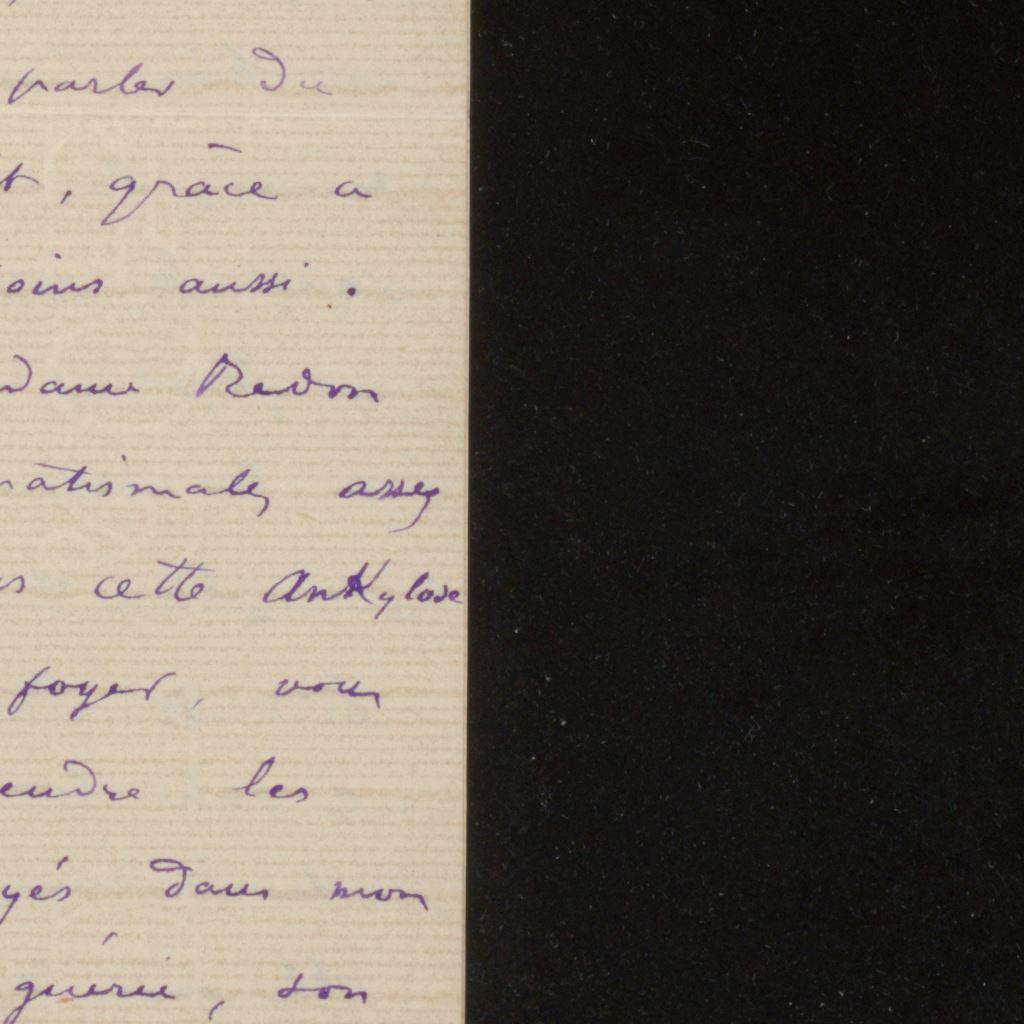 parler du
t, grâce a
oins aussi.
dame Redon
matismales assez
rs cette ankylose
foyer, vous
endre les
yés dans mon
guérie, son